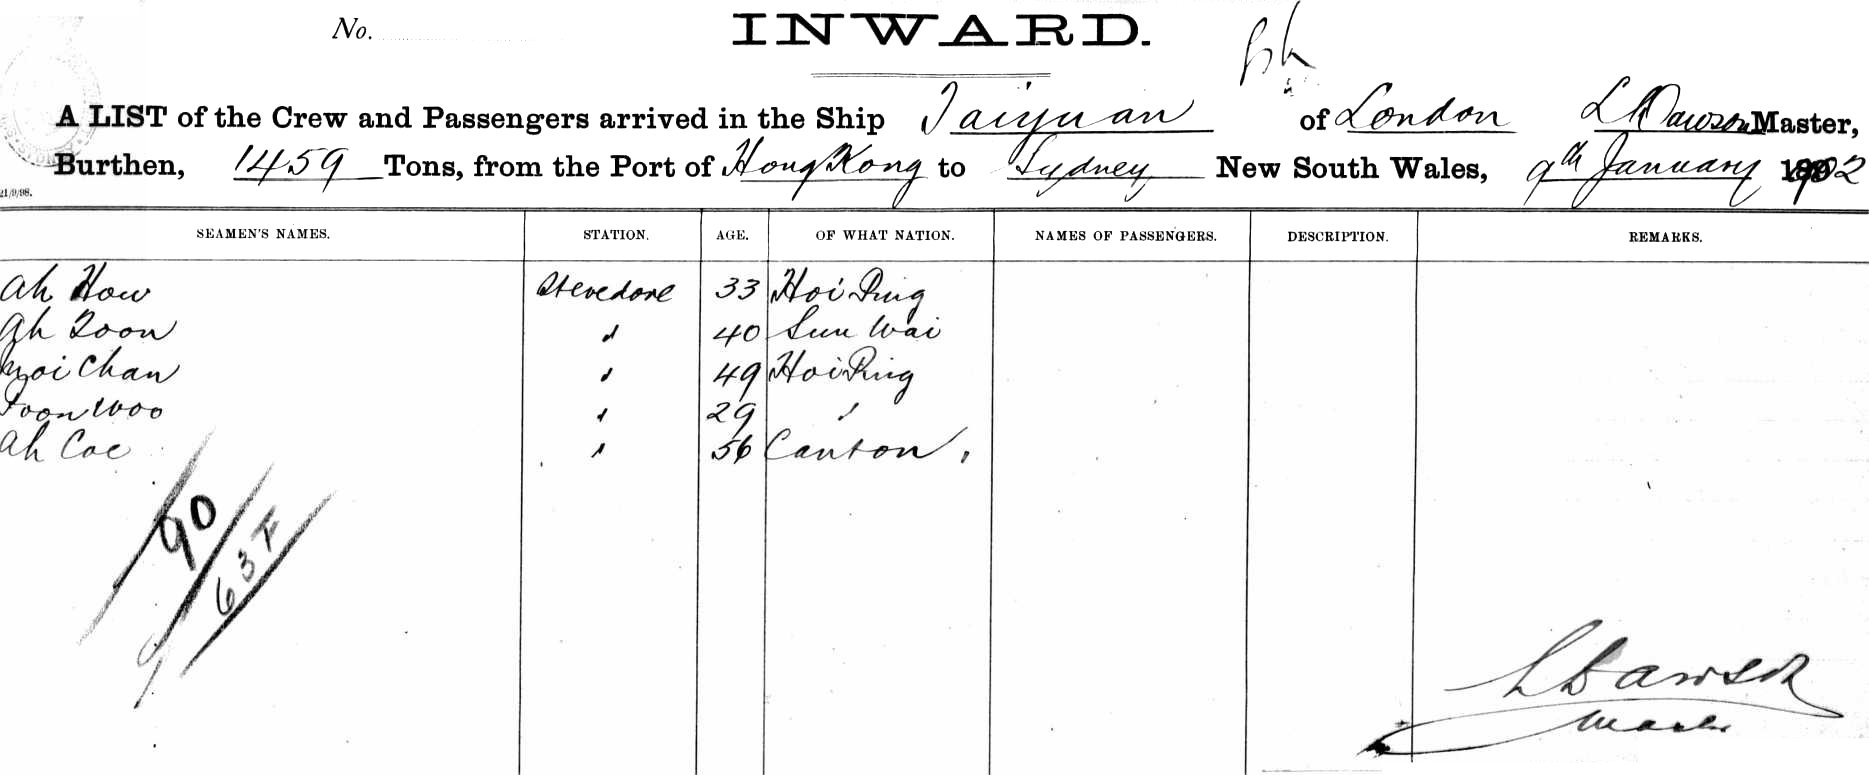 No.
INWARD.
A LIST of the Crew and Passengers arrived in the Ship Taiyuan of London L Dawson Master,
Burthen, 1459 Tons, from the Port of Hong Kong to Sydney New South Wales, 9th January 1902
21/9/98.
SEAMEN'S NAMES. STATION. AGE. OF WHAT NATION. NAMES OF PASSENGERS. DESCRIPTION. REMARKS.
Ah How Stevedore 33 Hoi Ping
Ah Toon " 40 Sun Wai
Moi Chan " 49 Hoi Ping
Foon Woo " 29 "
Ah Coe " 56 Canton
90
63 F
L Dawson
Master